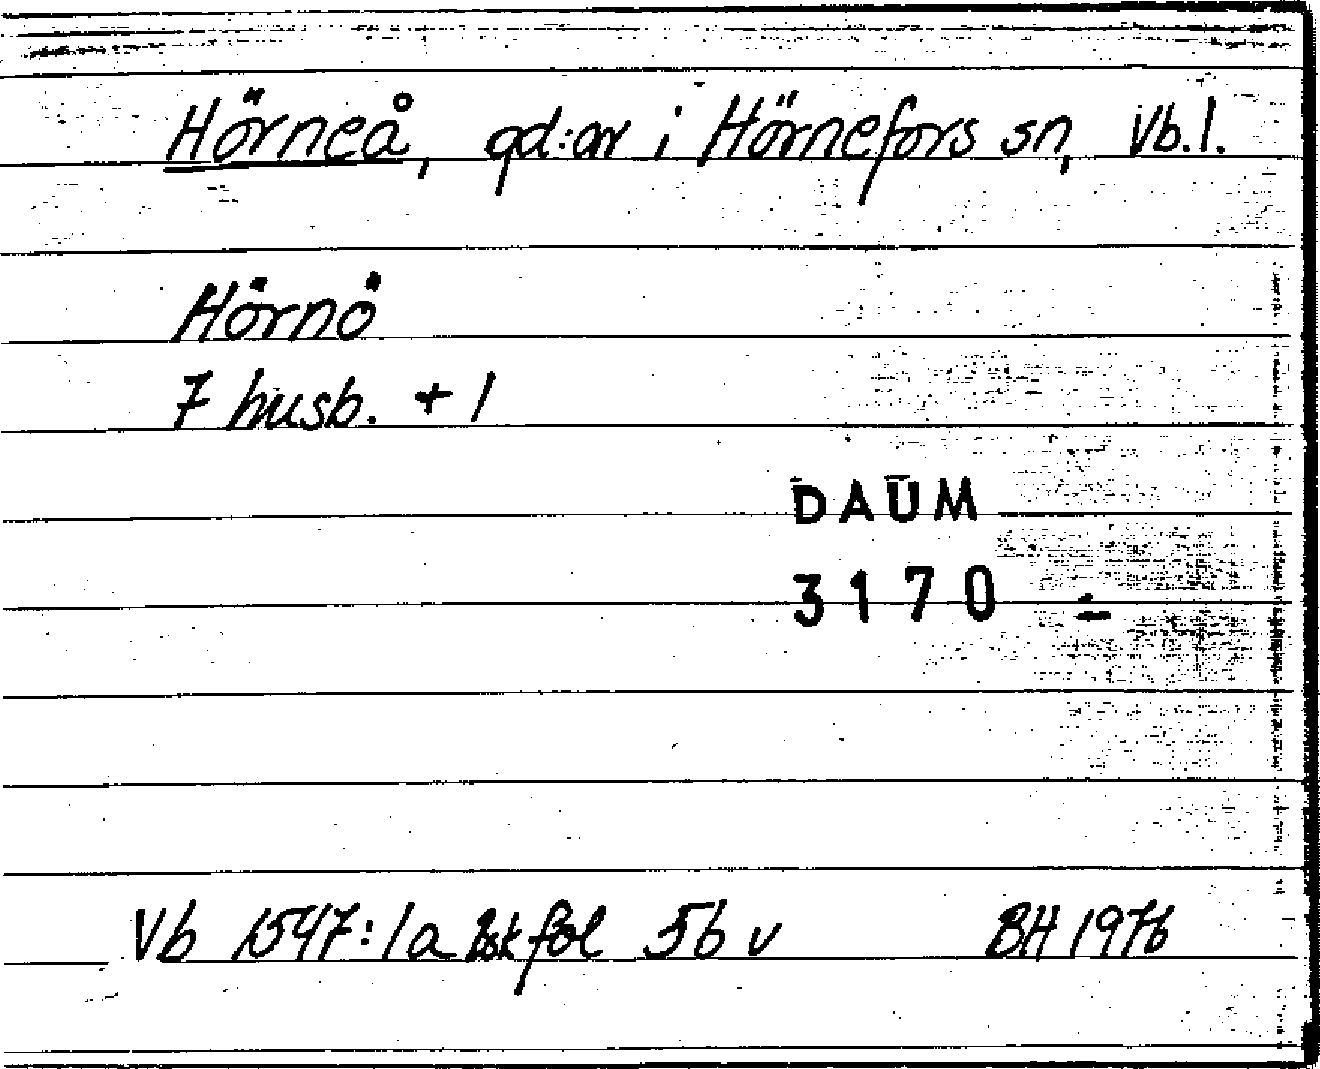 Hörneå, gd:ar i Hörnefors sn, Vb.l.
Hörnö
7 husb. + 1
DAUM
3170
Vb 1547:1a fol 56 v BH 1976